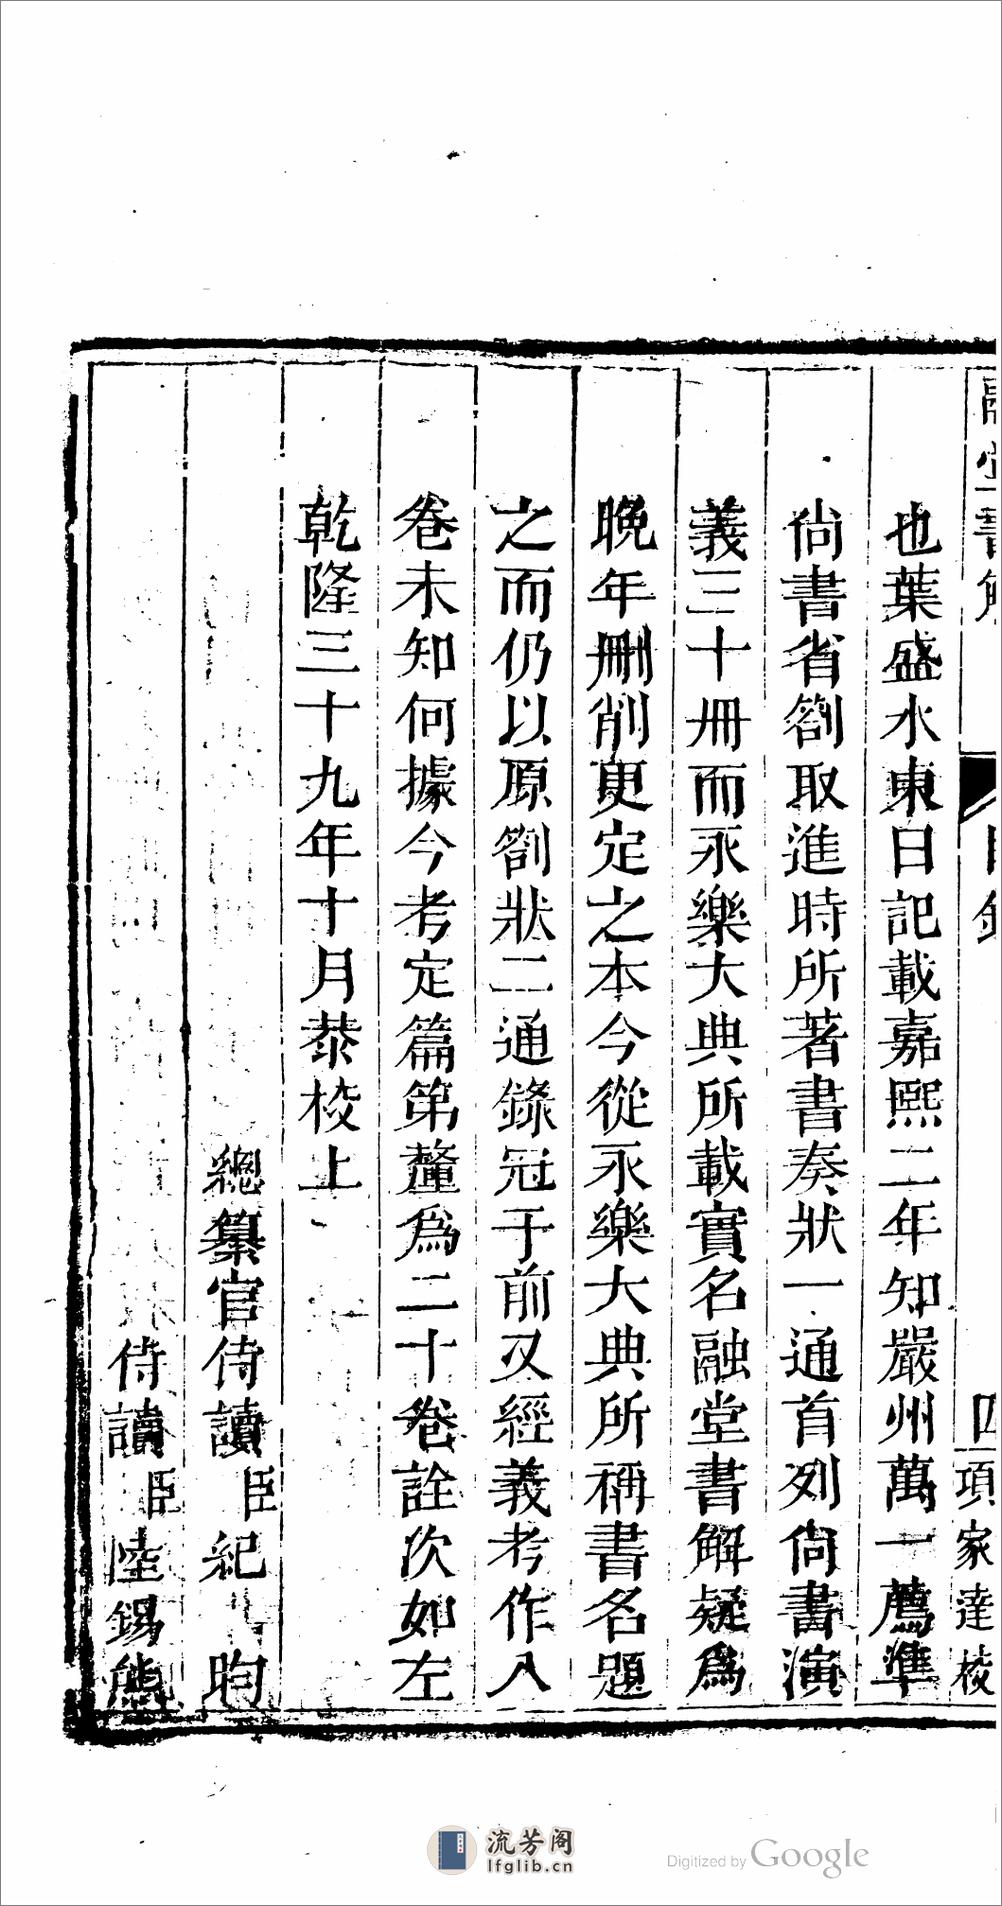 融堂書解
目錄
四
項家達校
也葉盛水東日記載嘉熙二年知嚴州萬一薦準
尙書省劄取進時所著書奏狀一通首列尙書演
義三十冊而永樂大典所載實名融堂書解疑爲
晚年刪削更定之本今從永樂大典所稱書名題
之而仍以原劄狀二通錄冠于前又經義考作八
卷未知何據今考定篇第釐爲二十卷詮次如左
乾隆三十九年十月恭校上
總纂官侍讀臣紀昀
侍讀臣陸錫熊
流芳阁
lfglib.cn
Digitized by Google